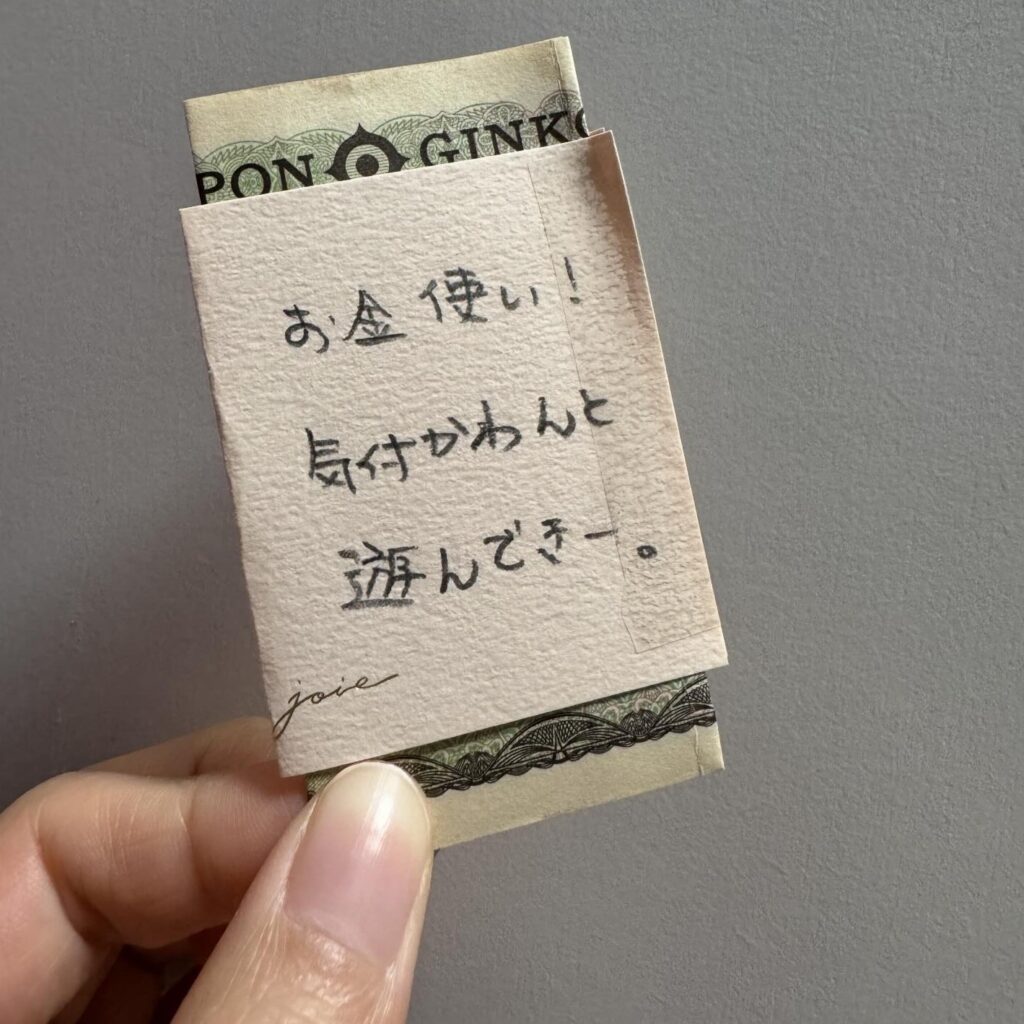 PON GINKO
お金使い!
気付かわんと
遊んできー。
joie